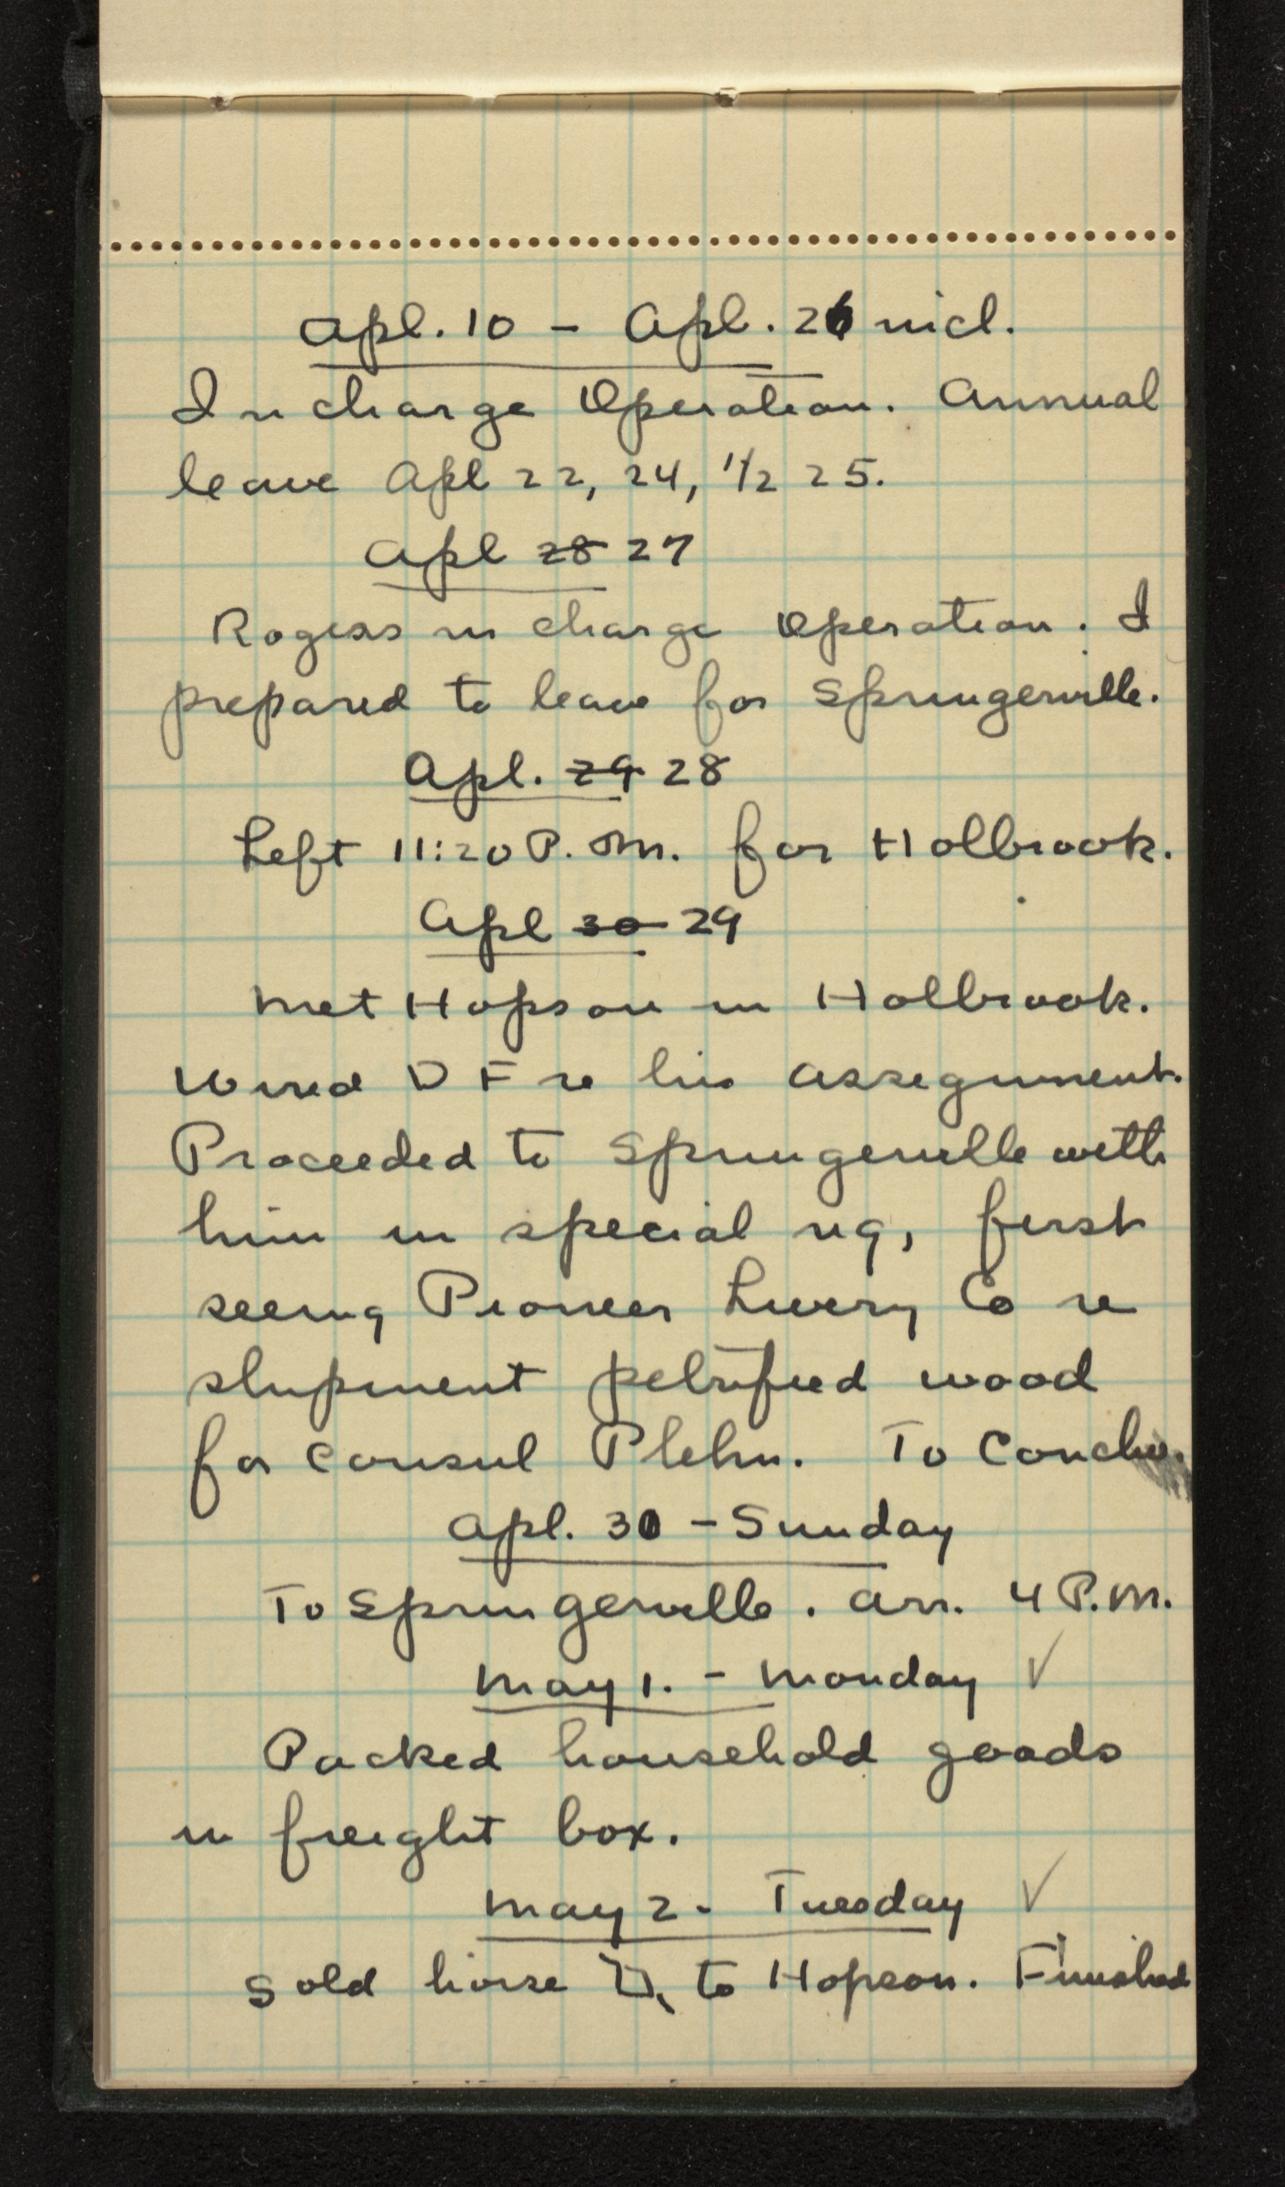 Apl. 10 - Apl. 26 incl.
In charge Operation. Annual
leave Apl 22, 24, 1/2 25.
Apl 28 27
Rogers in charge Operation. I
prepared to leave for Springerville.
Apl. 29 28
Left 11:20 P.M. for Holbrook.
Apl 30 29
Met Hopson in Holbrook.
Wired D F re his assignment.
Proceeded to Springerville with
him in special rig, first
seeing Pioneer Livery Co re
shipment petrified wood
for Consul Plehn. To Concho.
Apl. 30 - Sunday
To Springerville. Arr. 4 P.M.
May 1. - Monday ✓
Packed household goods
in freight box.
May 2 - Tuesday ✓
Sold horse to Hopson. Finished